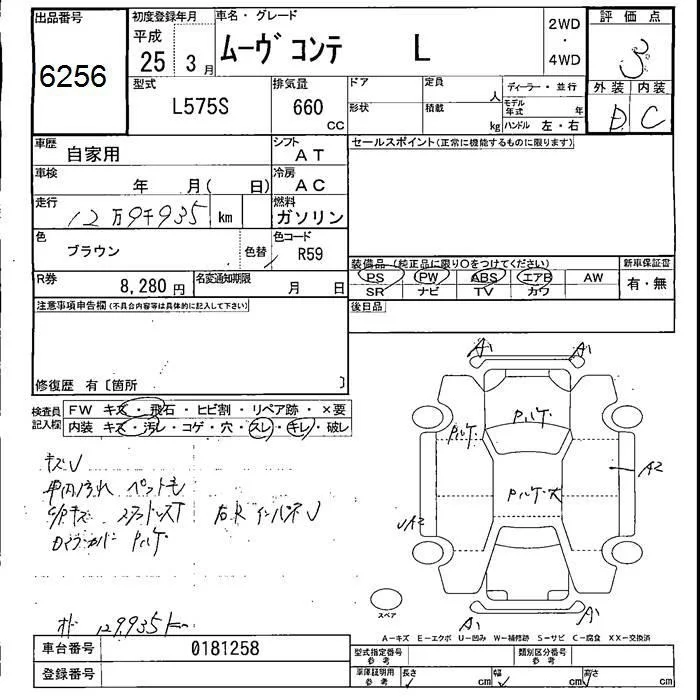 出品番号
6256
初度登録年月
平成
25年 3月
車名・グレード
ムーヴ コンテ L
2WD
・
4WD
評価点
3
外装 内装
D C
型式
L575S
排気量
660
CC
ドア
形状
定員
人
積載
kg
ディーラー・並行
モデル年式 年
ハンドル 左・右
車歴
自家用
シフト
AT
セールスポイント(正常に機能するものに限ります)
車検
年 月( 日)
冷房
AC
走行
12万9千935 km
燃料
ガソリン
色
ブラウン
色替
色コード
R59
装備品 (純正品に限り○をつけてください)
新車保証書
PS PW ABS エアB AW
SR ナビ TV カワ
有・無
R券
8,280円
名変通知期限
月 日
後日品
注意事項申告欄(不具合内容等は具体的に記入して下さい)
修復歴 有〔箇所 〕
検査員記入欄
FW キズ・飛石・ヒビ割・リペア跡・×要
内装 キズ・汚レ・コゲ・穴・スレ・キレ・破レ
キズU
車内汚れ ペットも
右R インパネU
PハゲA1 A1
Pハゲ
Pハゲ
Pハゲ大
A2
UA2
スペア
A1 A1
129,935km
A-キズ E-エクボ U-凹み W-補修跡 S-サビ C-腐食 XX-交換済
車台番号
0181258
登録番号
型式指定番号
参考
類別区分番号
参考
車庫証明用
参考
長さ cm 幅 cm 高さ cm